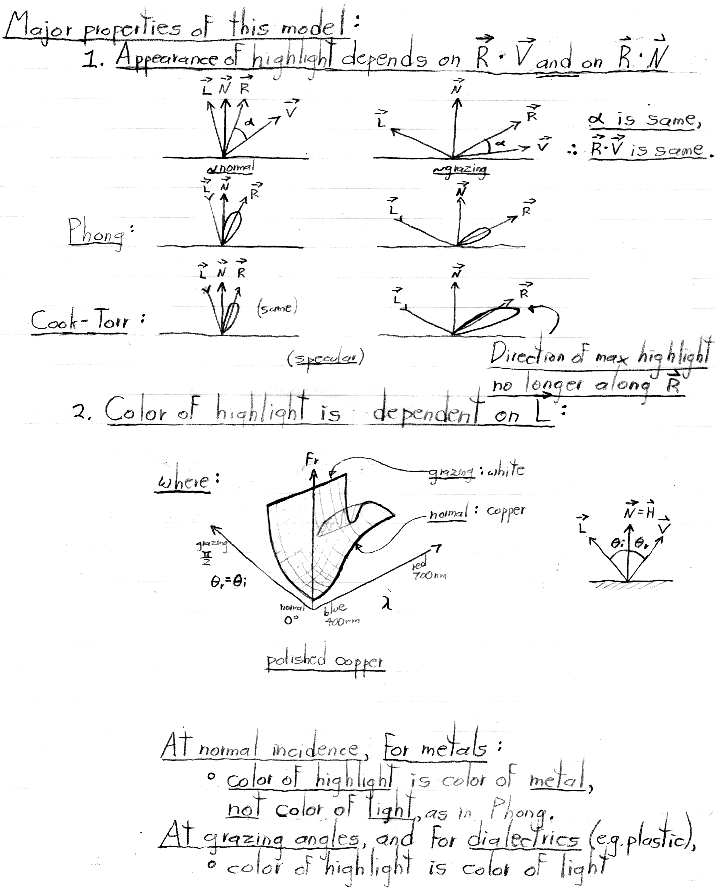 Major properties of this model:
1. Appearance of highlight depends on R · V and on R · N
L N R
V
α
~normal
N
L
R
α
V
~grazing
α is same,
∴ R·V is same.
Phong:
L N R
N
L
R
Cook-Torr:
L N R
(same)
N
L
R
(specular)
Direction of max highlight
no longer along R
2. Color of highlight is dependent on L:
where:
Fr
grazing: white
normal: copper
grazing
π/2
θr=θi
normal
0°
blue
400nm
λ
red
700nm
N=H
L
V
θi θr
polished copper
At normal incidence, for metals:
° color of highlight is color of metal,
not color of light, as in Phong.
At grazing angles, and for dialectrics (e.g. plastic),
° color of highlight is color of light